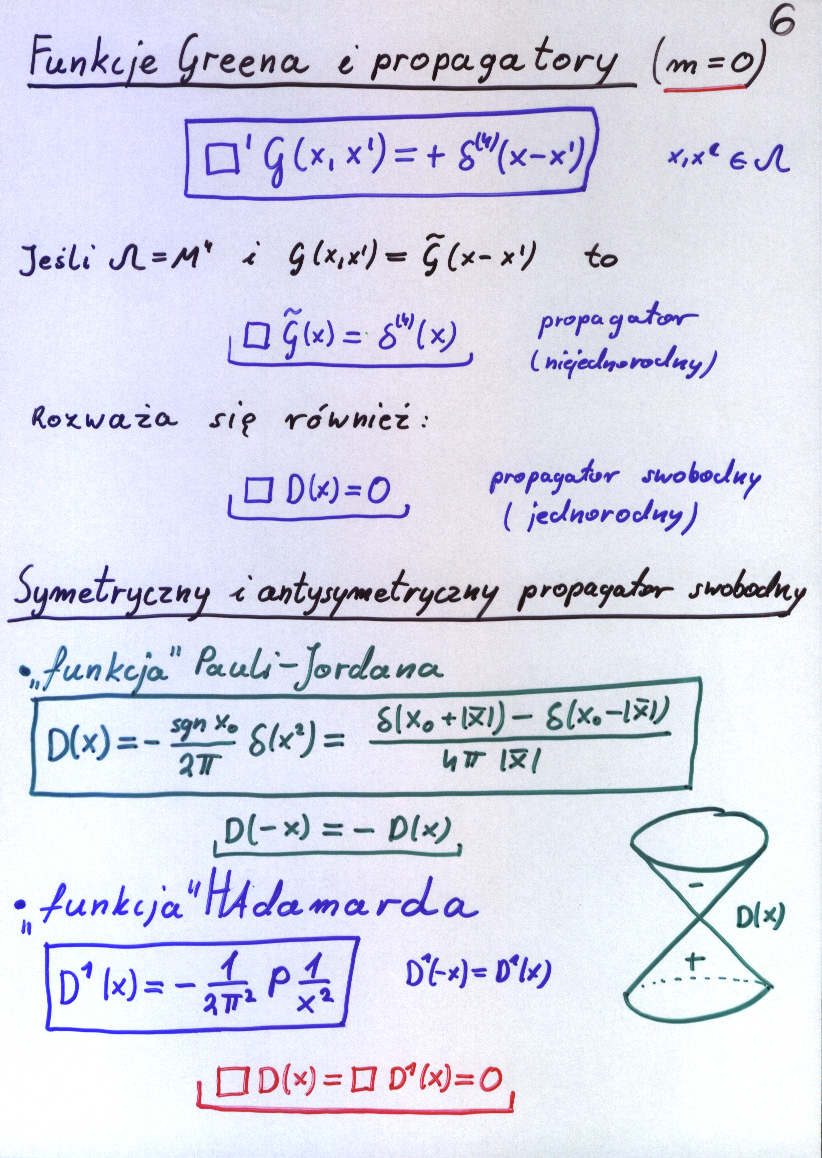 6
Funkcje Greena i propagatory (m=0)
□' G(x, x') = + δ⁽⁴⁾(x-x') x, x' ∈ Ω
Jeśli Ω = M⁴ i G(x,x') = G̃(x-x') to
□ G̃(x) = δ⁽⁴⁾(x) propagator
(niejednorodny)
Rozważa się również:
□ D(x) = 0 propagator swobodny
(jednorodny)
Symetryczny i antysymetryczny propagator swobodny
• „funkcja" Pauli-Jordana
D(x) = - sgn x₀ / 2π δ(x²) = δ(x₀ + |x̄|) - δ(x₀ - |x̄|) / 4π |x̄|
D(-x) = - D(x)
• „funkcja" HAdamarda
-
D(x)
+
D¹(x) = - 1 / 2π² P 1 / x² D¹(-x) = D¹(x)
□ D(x) = □ D¹(x) = 0